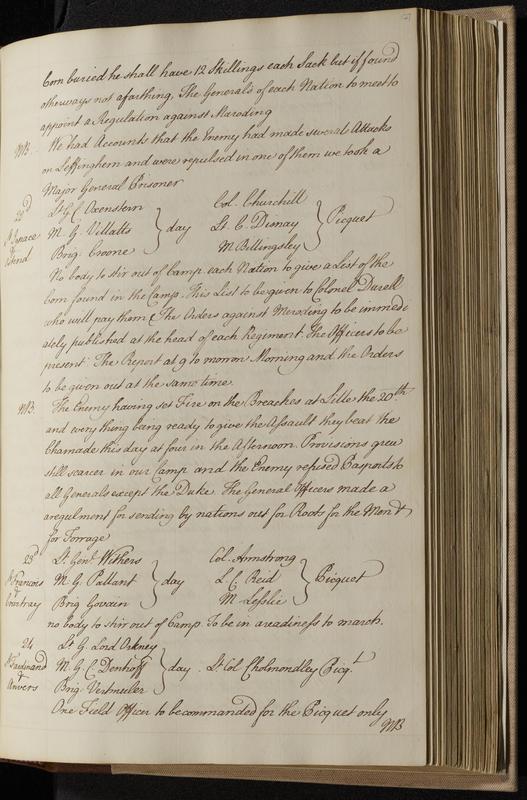 Corn buried he shall have 12 Skillings each Sack but if found
otherways not a farthing, The Generals of each Nation to meet to
appoint a Regulation against Maroding
NB. We had Accounts that the Enemy had made several Attacks
on Leffinghem and were repulsed in one of them we took a
Major General Prisoner
22d Lt G C. Oxenstern Col. Churchill
St Ignace M. G. Villatts day Lt. C. Disnay Picquet
& Ostend Brig. Croone M Billingsley
No body to stir out of Camp. each Nation to give a List of the
Corn found in the Camp. This List to be given to Colonel Durell
who will pay them. The Orders against Meroding to be immedi
ately published at the head of each Regiment. The Officers to be
present. The Report at 9 to morrow Morning and the Orders
to be given out at the same time.
NB. The Enemy having set Fire on the Breaches at Lille the 20th
and every thing being ready to give the Assault they beat the
Chamade this day at four in the Afternoon. Provisions grew
still scarcer in our Camp and the Enemy refused Pasports to
all Generals except the Duke. The General Officers made a
aregulment for sending by nations out for Roots for the Men &
for Forrage
23d Lt. Genl. Withers Col. Armstrong
St Francois M. G. Pallant day L. C. Reid Picquet
& Courtray Brig Gouain M Lesslie
no body to stir out of Camp. To be in areadiness to march.
24 Lt G. Lord Orkney
St Ferdinand M. G C. Denhoff day. Lt Col Cholmondley Picqt
& Anvers Brig. Vertmuler
One Field Officer to be commanded for the Picquet only
NB